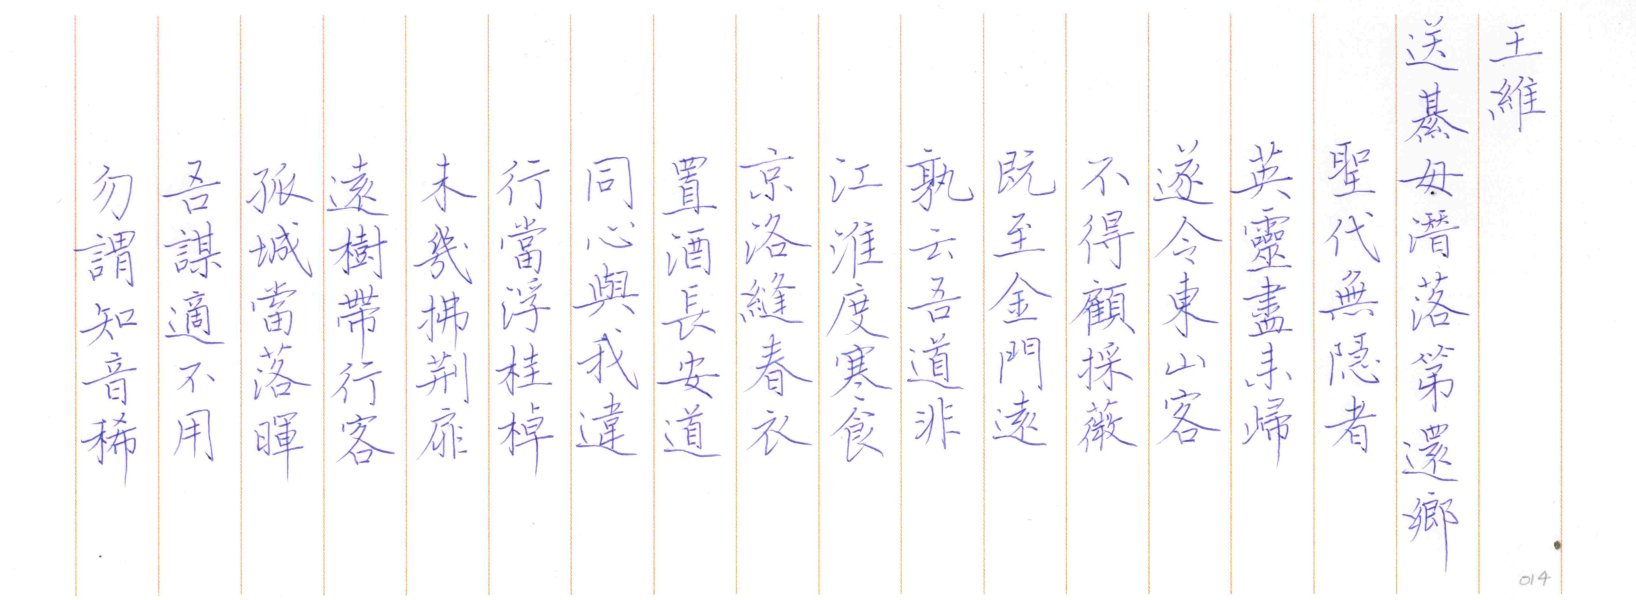 王維
送綦毋潛落第還鄉
聖代無隱者
英靈盡來歸
遂令東山客
不得顧採薇
既至金門遠
孰云吾道非
江淮度寒食
京洛縫春衣
置酒長安道
同心與我違
行當浮桂棹
未幾拂荊扉
遠樹帶行客
孤城當落暉
吾謀適不用
勿謂知音稀
014